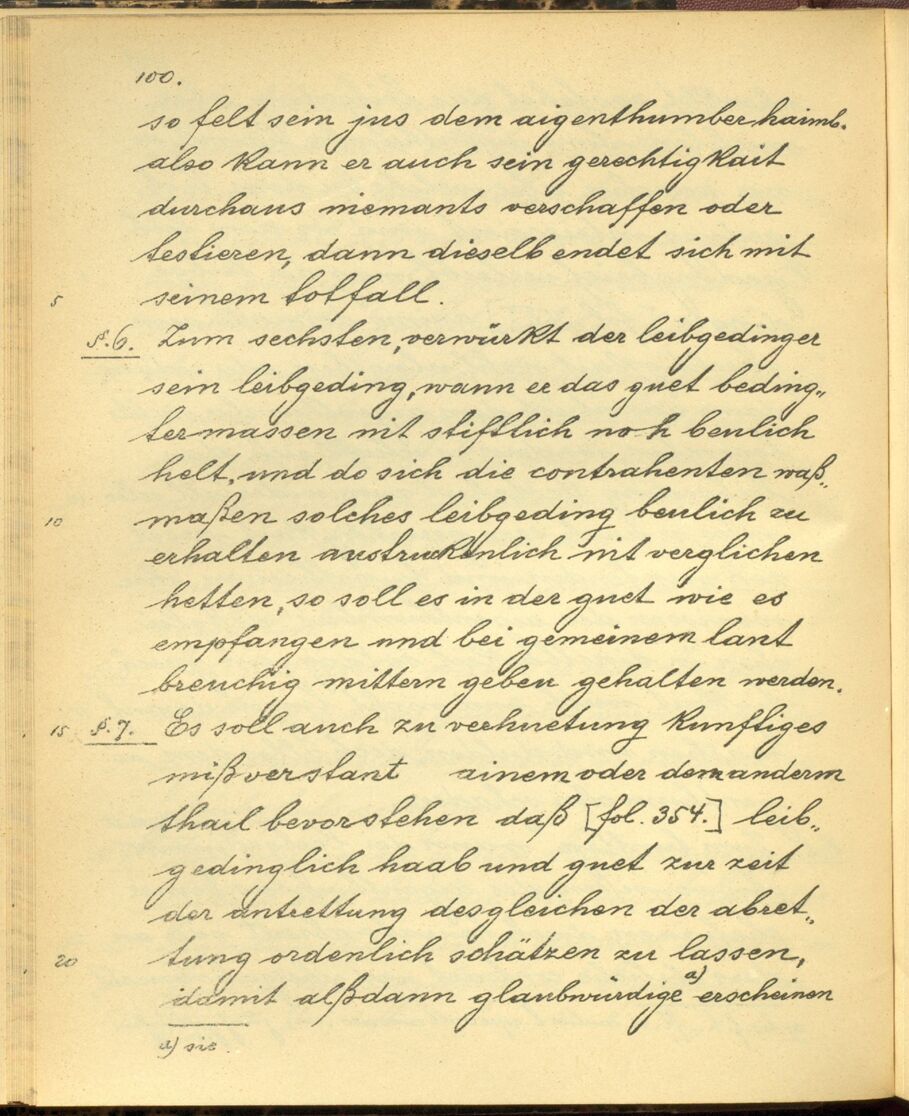 100.
so felt sein jus dem aigenthumber haimb.
also kann er auch sein gerechtigkait
durchaus niemants verschaffen oder
testieren, dann dieselb endet sich mit
5 seinem totfall.
§.6. Zum sechsten, verwürkt der leibgedinger
sein leibgeding, wann er das guet beding„
termassen nit stiftlich noch beulich
helt, und do sich die contrahenten waß„
10 maßen solches leibgeding beulich zu
erhalten austruckenlich nit verglichen
hetten, so soll es in der guet wie es
empfangen und bei gemeinem lant
breuchig mittern geben gehalten werden.
15 §.7. Es soll auch zu verhuetung kunftiges
mißverstant ainem oder dem anderm
thail bevorstehen daß [fol. 354.] leib„
gedinglich haab und guet zur zeit
der antrettung desgleichen der abret„
20 tung ordenlich schätzen zu lassen,
damit alßdann glaubwürdige a) erscheinen
a) sic